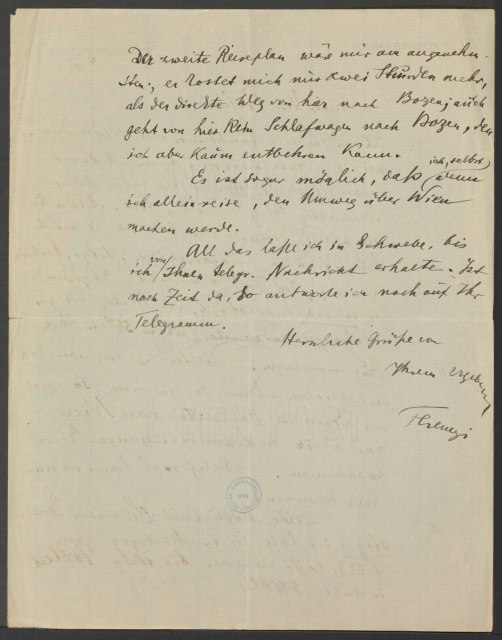 Der zweite Reiseplan wäre mir am angenehm-
sten; er kostet mich nur zwei Stunden mehr,
als der direkte Weg von hier nach Bozen; auch
geht von hier kein Schlafwagen nach Bozen, den
ich aber kaum entbehren kann.
Es ist sogar möglich, daß ich, selbst wenn
ich allein reise, den Umweg über Wien
machen werde.
All das laße ich in Schwebe, bis
ich von Ihnen telegr. Nachricht erhalte. Ist
noch Zeit da, so antworte ich noch auf Ihr
Telegramm.
Herzliche Grüße von
Ihrem ergebenen
Ferenczi